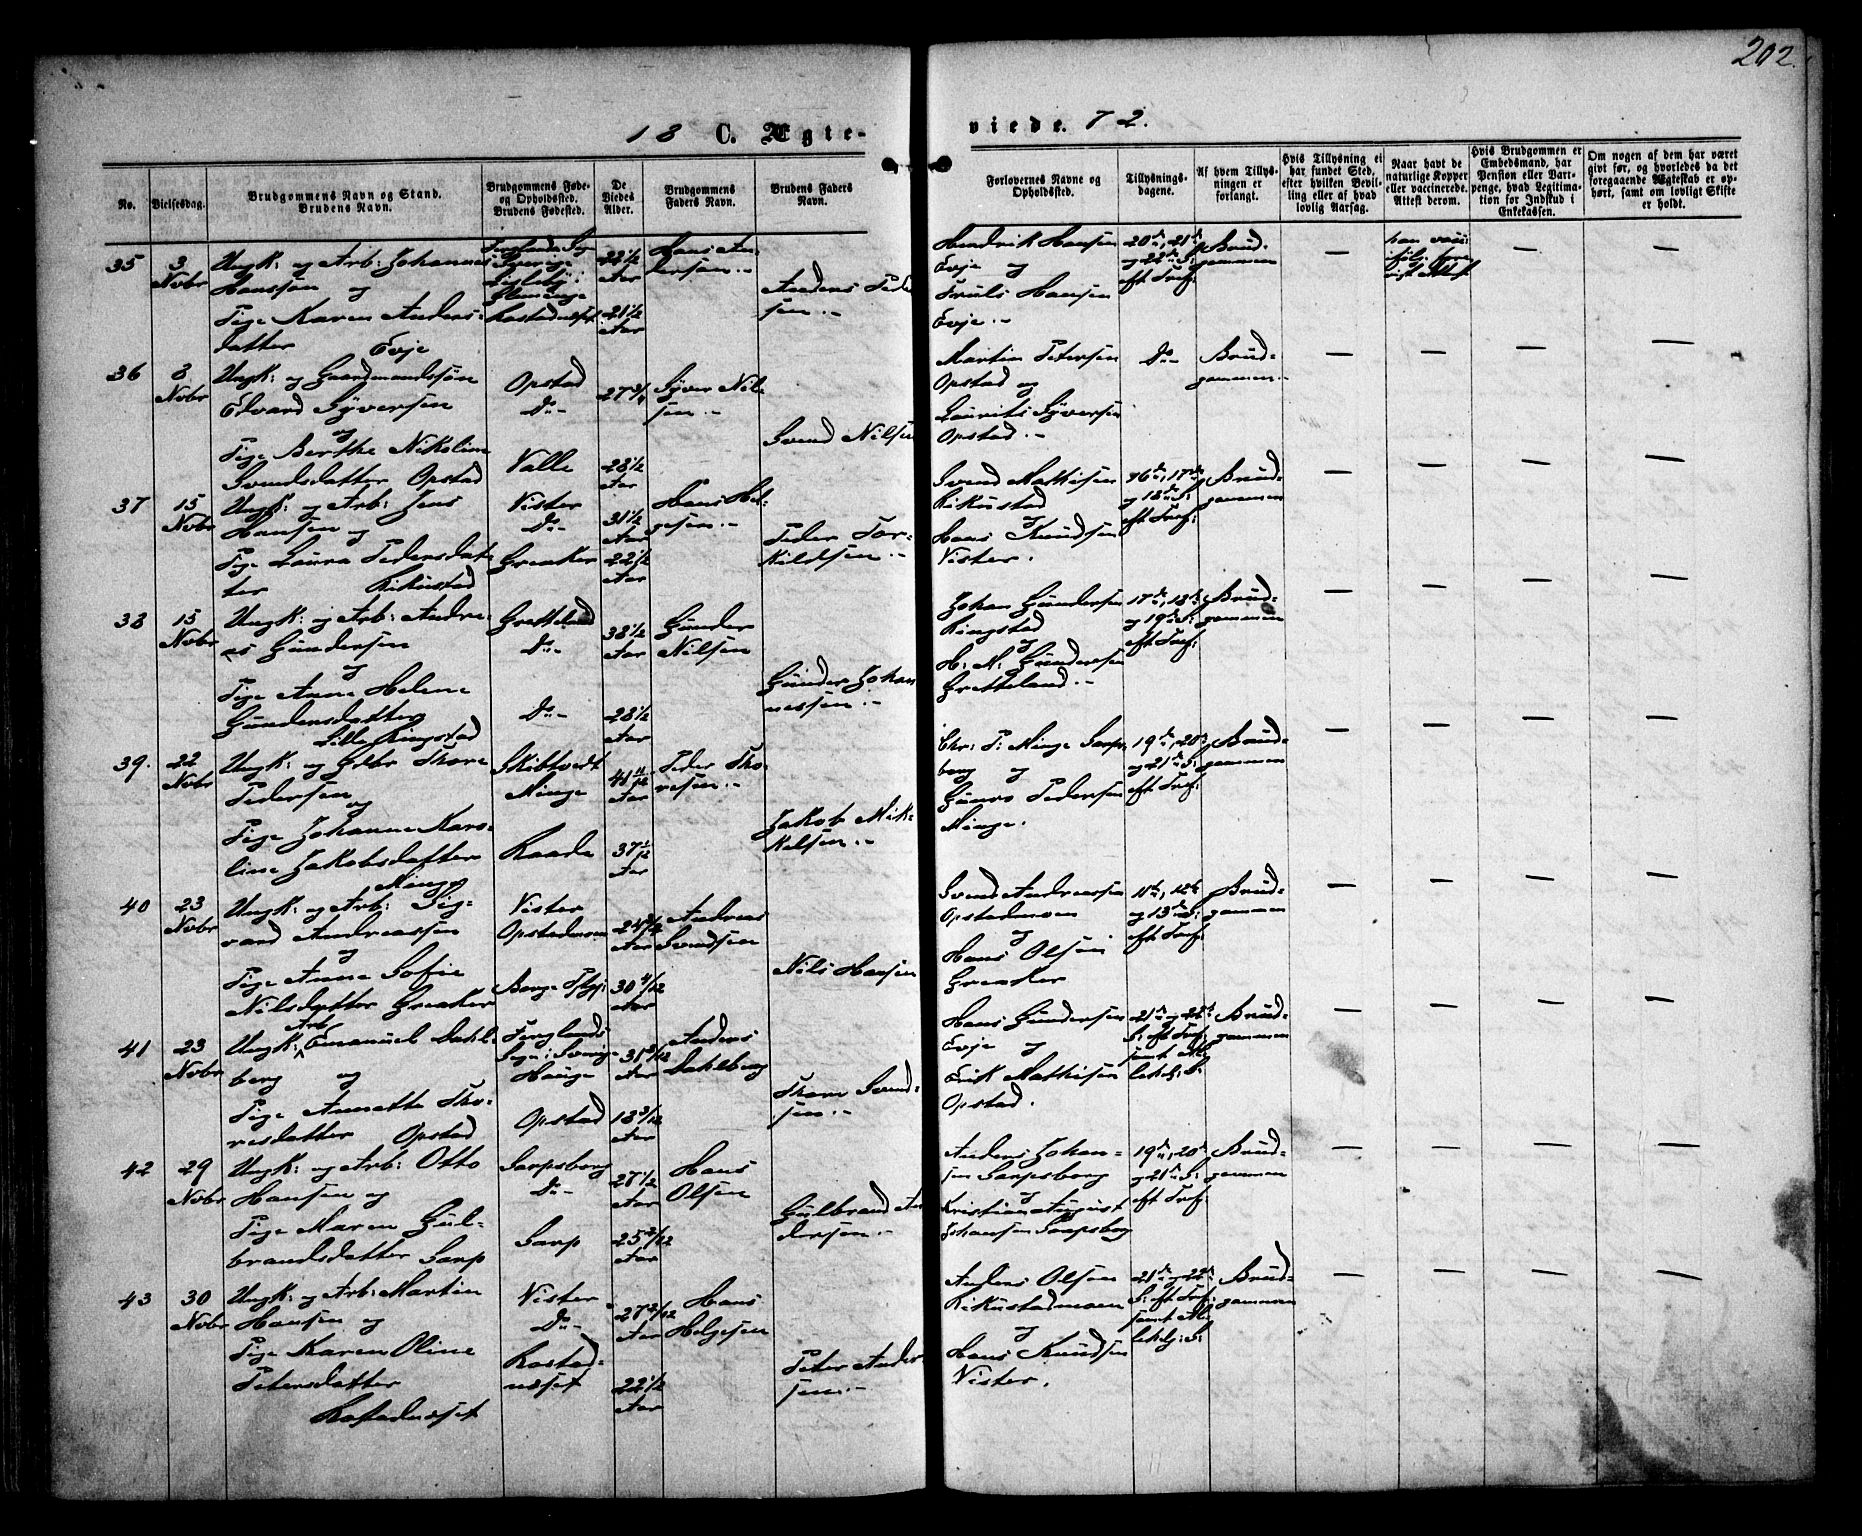 202.
18 C. Ægte-
viede. 72.
No.
Vielsesdag.
Brudgommens Navn og Stand.
Brudens Navn.
Brudgommens Føde-
og Opholdssted.
Brudens Fødested.
De
Viedes
Alder.
Brudgommens
Faders Navn.
Brudens Faders
Navn.
Forlovernes Navne og
Opholdssted.
Tillysnings-
dagene.
Af hvem Tillys-
ningen er
forlangt.
Hvis Tillysning ei
har fundet Sted,
efter hvilken Bevil-
ling eller af hvad
lovlig Aarsag.
Naar havt de
naturlige Kopper
eller vaccinerede.
Attest derom.
Hvis Brudgommen er
Embedsmand, har
Pension eller Vart-
penge, hvad Legitima-
tion for Indskud i
Enkekassen.
Om nogen af dem har været
givt før, og hvorledes da det
foregaaende Ægteskab er op-
hørt, samt om lovligt Skifte
er holdt.
35
3
Nobr
Ungk: og Arb: Johannes
Hanssøn og
Pige Karen Anders-
datter Evje
Sverige
Rostadnæset
22 1/2
Aar
21 1/2
Aar
Hans An-
dersen.-
Anders Peder
sen.-
Hendrik Hansen
Evje og
Truls Hansen
Evje.-
20de, 21de
og 22de S:
eft Tref:
Brud-
gommen
36
3
Nobr
Ungk: og Gaardmandssøn
Edvard Syversen
og
Pige Berthe Nikoline
Svendsdatter Opstad
Opstad
Do-
Valle
27 3/4
28 1/2
Aar
Syver Nil-
sen.-
Svend Nilsen
Martin Petersen
Opstad og
Laurits Syversen
Opstad.-
Do-
Brud-
gommen.-
37
15
Nobr
Ungk: og Arb: Jens
Hansen og
Pige Laura Pedersdat-
ter Kikustad
Vister
Do-
Greaker
31 1/2
Aar
22 1/2
Aar
Hans Hel-
gesen.-
Peder Tor-
kildsen.-
Svend Mathisen
Kikustad
og
Hans Knudsen
Vister.
16de, 17de
og 18de S:
eft Tref:
Brud-
gommen
38
15
Nobr
Ungk: og Arb: Andre-
as Gundersen
og
Pige Anne Helene
Gundersdatter
Lille Ringstad
Gretteland
Do-
Do-
38 1/2
Aar
28 1/2
Aar
Gunder
Nilsen
Gunder Johan
nessen.-
Johan Gundersen
Ringstad
og
H: N: Gundersen
Gretteland.-
17de, 18de
og 19de S:
eft Tref:
Brud-
gommen
39.
22
Nobr
Ungk: og Gdbr Thore
Pedersen
og
Pige Johanne Karo-
line Jakobsdatter
Minge
Skibtvedt
Minge
Raade
41 11/12
Aar
37 1/12
Aar
Peder Tho-
resen.-
Jakob Mik-
kelsen.-
Chr: P: Minge Sarps
borg og
Pedersen
Minge.
19de, 20de
og 21de S:
eft Tref:
Brud-
gommen
40
23
Nobr
Ungk: og Arb: Sig-
vard Andreassen
og
Pige Anne Sofie
Nilsdatter Greaker
Vister
Opstadmoen
Berge
Aar
30 4/12
Aar
Andreas
Svendsen
Nils Hansen
Svend Andreassen
Opstadmoen
og
Hans Olsen
Greaker
11te, 12te
og 13de S:
eft Tref:
Brud-
gommen
41
23
Nobr
Arb
Ungk: Emanuel Dahl-
berg og
Pige Annette Tho-
resdatter Opstad
Hauge
Opstad
31 3/12
Aar
18 3/12
Aar
Anders
Dahlberg
Thore Svend-
sen.-
Hans Gundersen
Evje og
Erik Mathisen
Opstad.
21de og 22de
S: eft Tref:
samt
Brud-
gommen
42
29
Nobr
Ungk: og Arb: Otto
Hansen og
Pige Maren Gul-
brandsdatter Sarp
Sarpsborg
Do-
Sarp
27 1/2
Aar
25 2/12
Aar
Hans
Olsen
Gulbrand An
dersen.-
Anders Johan-
sen Sarpsborg
og
Kristian August
Johansen Sarpsborg
19de, 20de
og 21de S:
eft Tref:
Brud-
gommen
43
30
Nobr
Ungk: og Arb: Martin
Hansen og
Pige Karen Oline
Petersdatter
Rostadnæset
Vister
Do-
Rostad-
næset
27 2/12
Aar
22 1/2
Aar
Hans
Helgesen
Peter Ander
sen.-
Anders Olsen
Kikustadmoen
og
Hans Knudsen
Vister.
21de og 22de
S: eft Tref:
samt
Brud-
gommen